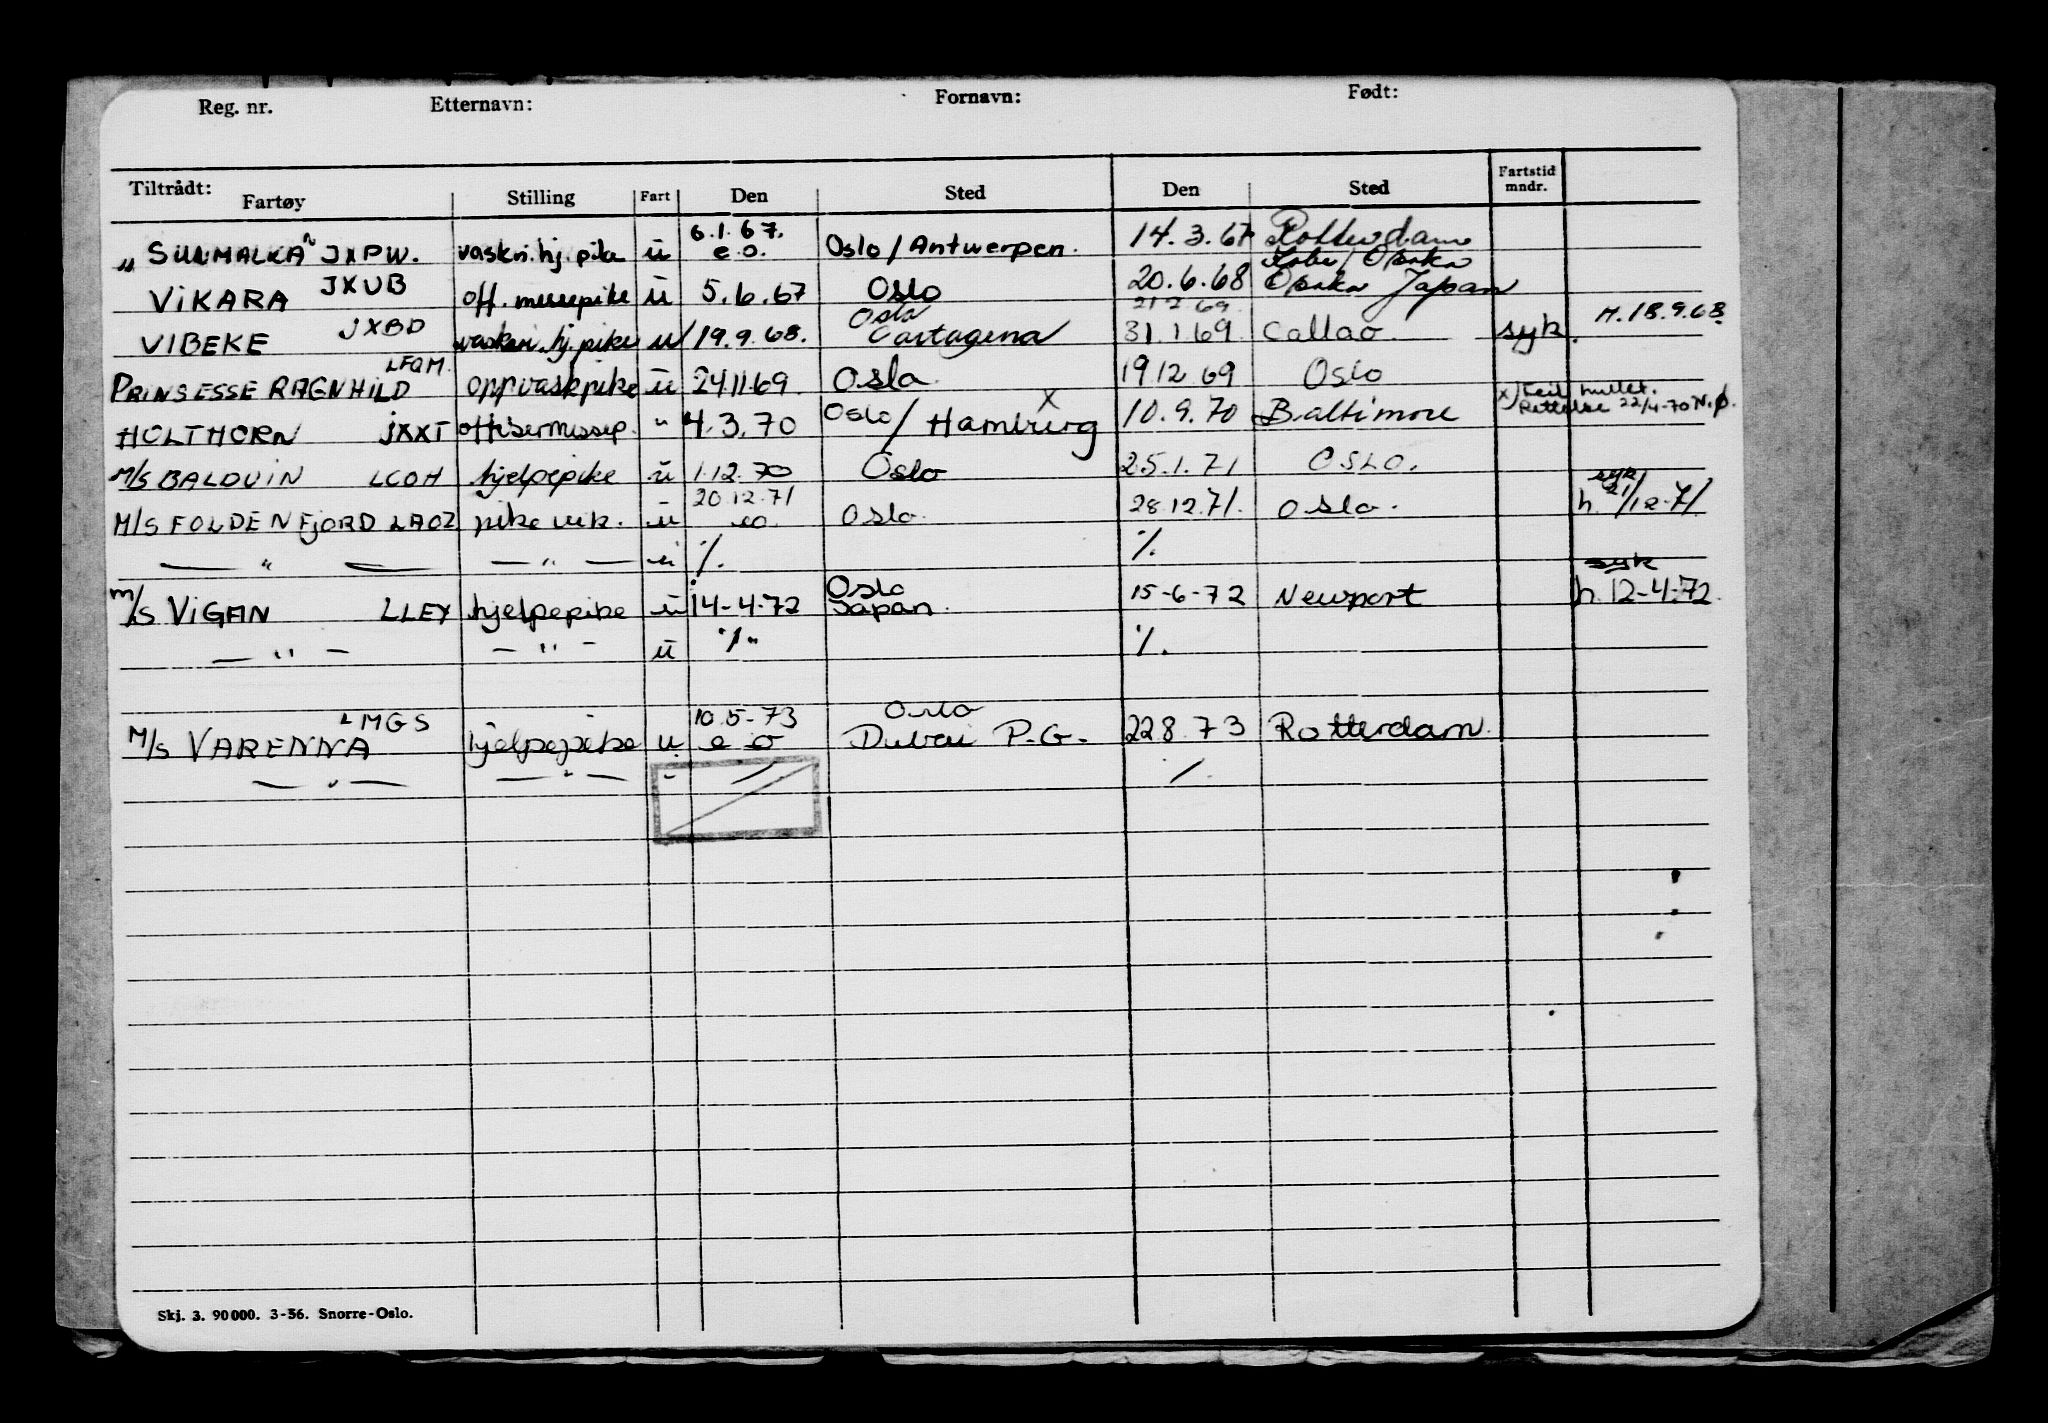 Reg. nr. Etternavn: Fornavn: Født:
Tiltrådt: Fartøy Stilling Fart Den Sted Den Sted Fartstid mndr.
„SUNMALKA" JXPW. vaskeri.hj.pike u 6.1.67. e.o. Oslo/Antwerpen. 14.3.67 Rotterdam
VIKARA JXUB off. messepike u 5.6.67 Oslo 20.6.68 Kobe/Osaka Osaka Japan
VIBEKE JXBD vaskeri.hj.pike u 19.9.68. Oslo Cartagena 21.2.69. 31.1.69. Callao syk. H.18.9.68.
PRINSESSE RAGNHILD LFQM. oppvaskpike u 24.11.69 Oslo 19.12.69 Oslo
HOLTHORN JXXT offisermessep. " 4.3.70 Oslo/Hamburg x 10.9.70 Baltimore x) Feil hullet. Rettelse 22/4-70 N.Ø.
M/S BALDUIN LCOH hjelpepike u 1.12.70 Oslo 25.1.71 OSLO.
M/S FOLDENFJORD LAOZ pike vik. u 20.12.71 eo Oslo 28.12.71. Oslo. syk h. 21/12-71
— " — — " — u ./. ./.
M/S VIGAN LLEY hjelpepike u 14-4-72 Oslo Japan. 15-6-72 Newport syk h. 12-4-72.
— " — — " — u ./. ./.
M/S VARENNA LMGS hjelpepike u 10.5-73 e o Oslo Dubai P.G. 22 8.73 Rotterdam.
— " — — " — ./.
Skj. 3. 90000. 3-56. Snorre-Oslo.